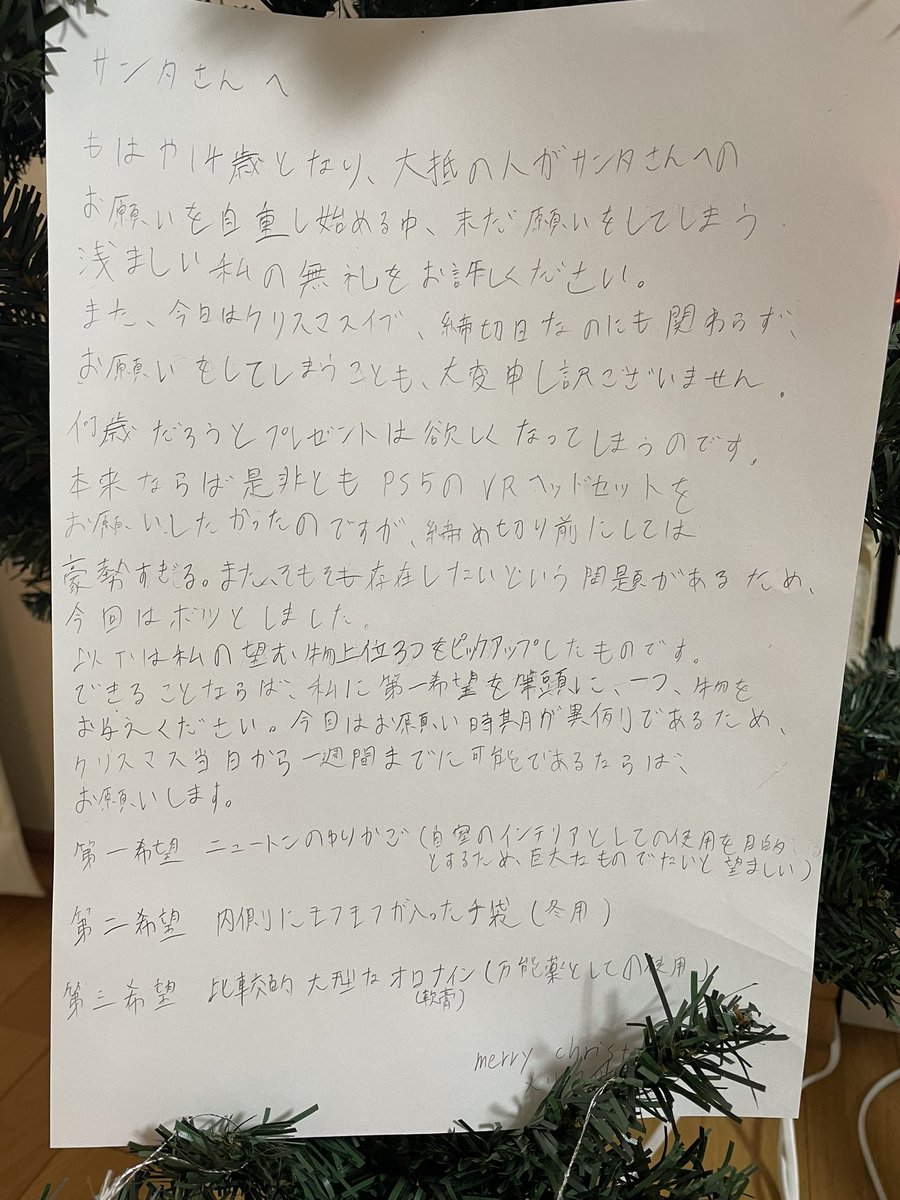 サンタさんへ
もはや14歳となり、大抵の人がサンタさんへの
お願いを自重し始める中、未だ願いをしてしまう
浅ましい私の無礼をお許しください。
また、今日はクリスマスイブ、締切日なのにも関わらず、
お願いをしてしまうことも、大変申し訳ございません。
何歳だろうとプレゼントは欲しくなってしまうのです。
本来ならば是非ともPS5のVRヘッドセットを
お願いしたかったのですが、締め切り前にしては
豪勢すぎる。また、そもそも存在したいという問題があるため、
今回はボツとしました。
以下は私の望む物上位3つをピックアップしたものです。
できることならば、私に第一希望を筆頭に、一つ、物を
お与えください。今回はお願い時期が異例であるため、
クリスマス当日から一週間までに可能であるならば、
お願いします。
第一希望 ニュートンのゆりかご(自室のインテリアとしての使用を目的
とするため、巨大なものでたいと望ましい)
第二希望 内側にモフモフが入った手袋(冬用)
第三希望 比較的大型なオロナイン(万能薬としての使用)
(軟膏)
merry